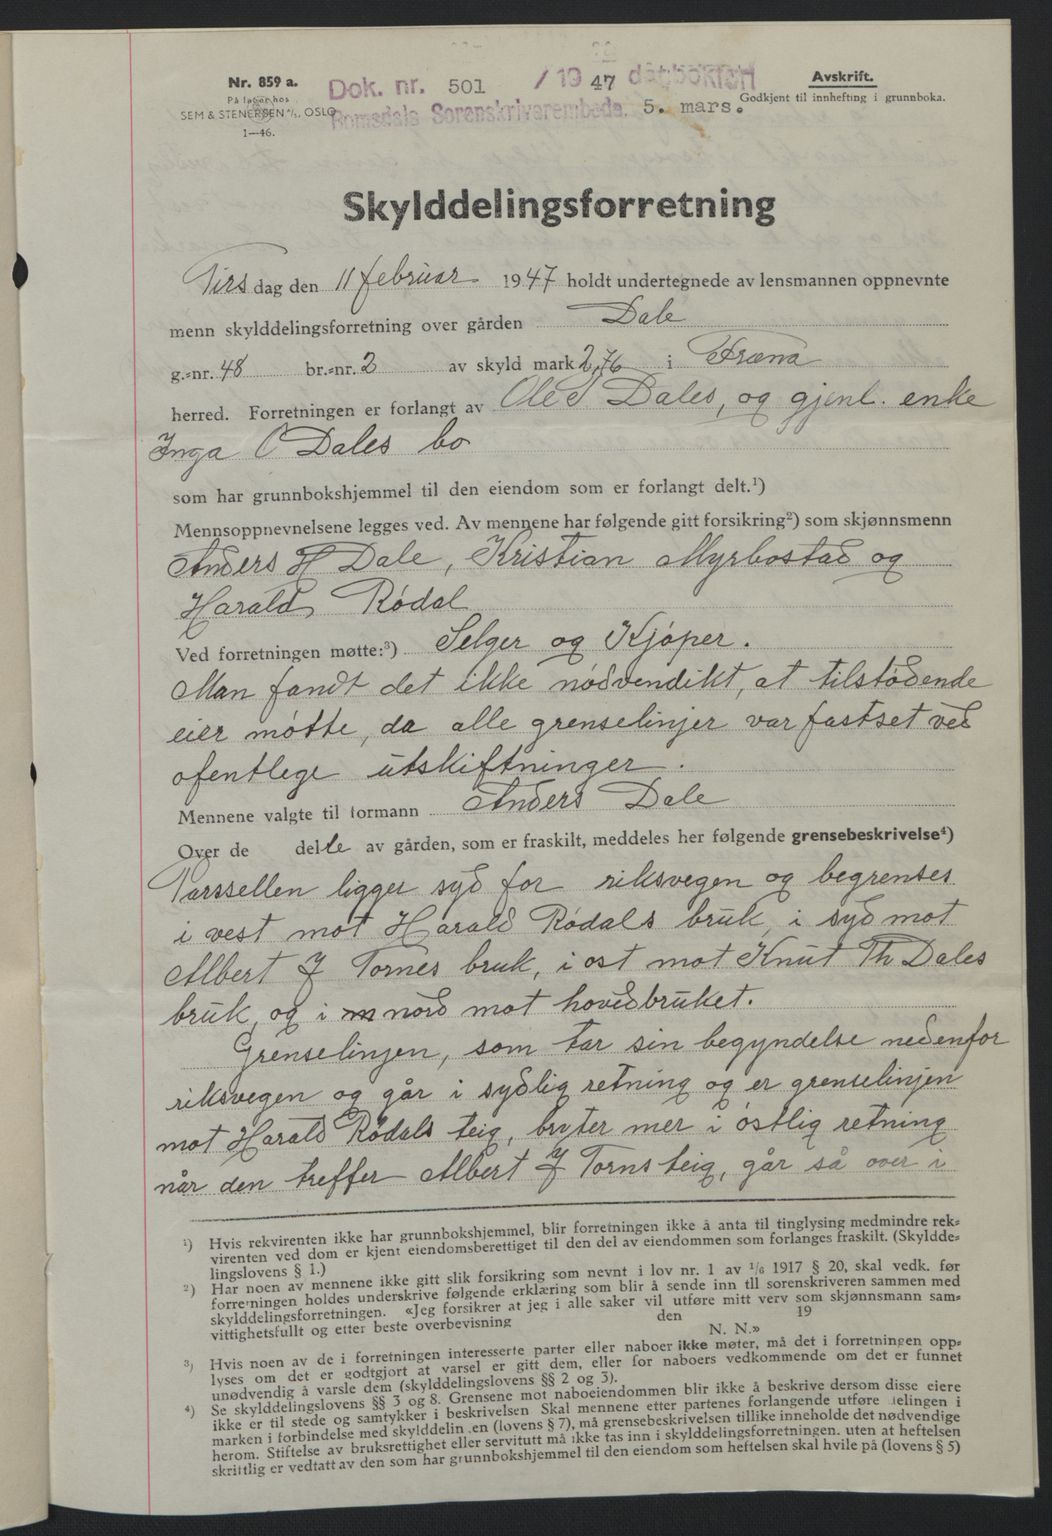 Nr. 859 a.
På lager hos
SEM & STENERSEN A/S, OSLO
1—46.
Dok. nr. 501 / 19 47 dagbokført
Romsdals Sorenskrivarembede. 5. mars.
Avskrift.
Godkjent til innhefting i grunnboka.
Skylddelingsforretning
Tirsdag den 11 februar 1947 holdt undertegnede av lensmannen oppnevnte
menn skylddelingsforretning over gården Dale
g.-nr. 48 br.-nr. 2 av skyld mark 2,76 i Fræna
herred. Forretningen er forlangt av Ole S Dales, og gjenl. enke
Inga O Dales bo
som har grunnbokshjemmel til den eiendom som er forlangt delt.¹)
Mennsoppnevnelsene legges ved. Av mennene har følgende gitt forsikring²) som skjønnsmenn
Anders H Dale, Kristian Myrbostad og
Harald Rødal
Ved forretningen møtte:³) Selger og Kjøper.
Man fandt det ikke nødvendikt, at tilstødende
eier møtte, da alle grenselinjer var fastset ved
ofentlege utskiftninger.
Mennene valgte til formann Anders Dale
Over de delte av gården, som er fraskilt, meddeles her følgende grensebeskrivelse⁴)
Parssellen ligger syd for riksvegen og begrenses
i vest mot Harald Rødals bruk, i syd mot
Albert J Tornes bruk, i ost mot Knut Th Dales
bruk, og i nord mot hovedbruket.
Grenselinjen, som tar sin begyndelse nedenfor
riksvegen og går i sydlig retning og er grenselinjen
mot Harald Rødals teig, bryter mer i østlig retning
når den treffer Albert J Torns teig, går så over i
¹) Hvis rekvirenten ikke har grunnbokshjemmel, blir forretningen ikke å anta til tinglysing medmindre rek-
virenten ved dom er kjent eiendomsberettiget til den del av eiendommen som forlanges fraskilt. (Skyldde-
lingslovens § 1.)
²) Har noen av mennene ikke gitt slik forsikring som nevnt i lov nr. 1 av 1/6 1917 § 20, skal vedk. før
forretningen holdes underskrive følgende erklæring som blir å sende inn til sorenskriveren sammen med
skylddelingsforretningen. «Jeg forsikrer at jeg i alle saker vil utføre mitt verv som skjønnsmann sam-
vittighetsfullt og etter beste overbevisning den 19
N. N.»
³) Hvis noen av de i forretningen interesserte parter eller naboer ikke møter, må det i forretningen opp-
lyses om det er godtgjort at varsel er gitt dem, eller for naboers vedkommende om det er funnet
unødvendig å varsle dem (skylddelingslovens §§ 2 og 3).
⁴) Se skylddelingslovens §§ 3 og 8. Grensene mot naboeiendommen blir ikke å beskrive dersom disse eiere
ikke er til stede og samtykker i beskrivelsen Skal mennene etter partenes forlangende utføre delingen i
marken i forbindelse med skylddelin en (lovens § 7), må grensebeskrivelsen tillike inneholde det nødvendige
herom. Stiftelse av bruksrettighet eller servitutt må ikke tas inn i skylddelingsforretningen. uten at heftelsen
skriftlig er vedtatt av den som har grunnbokshjemmel til den eiendom som heftelsen skal hvile på (lovens § 5)